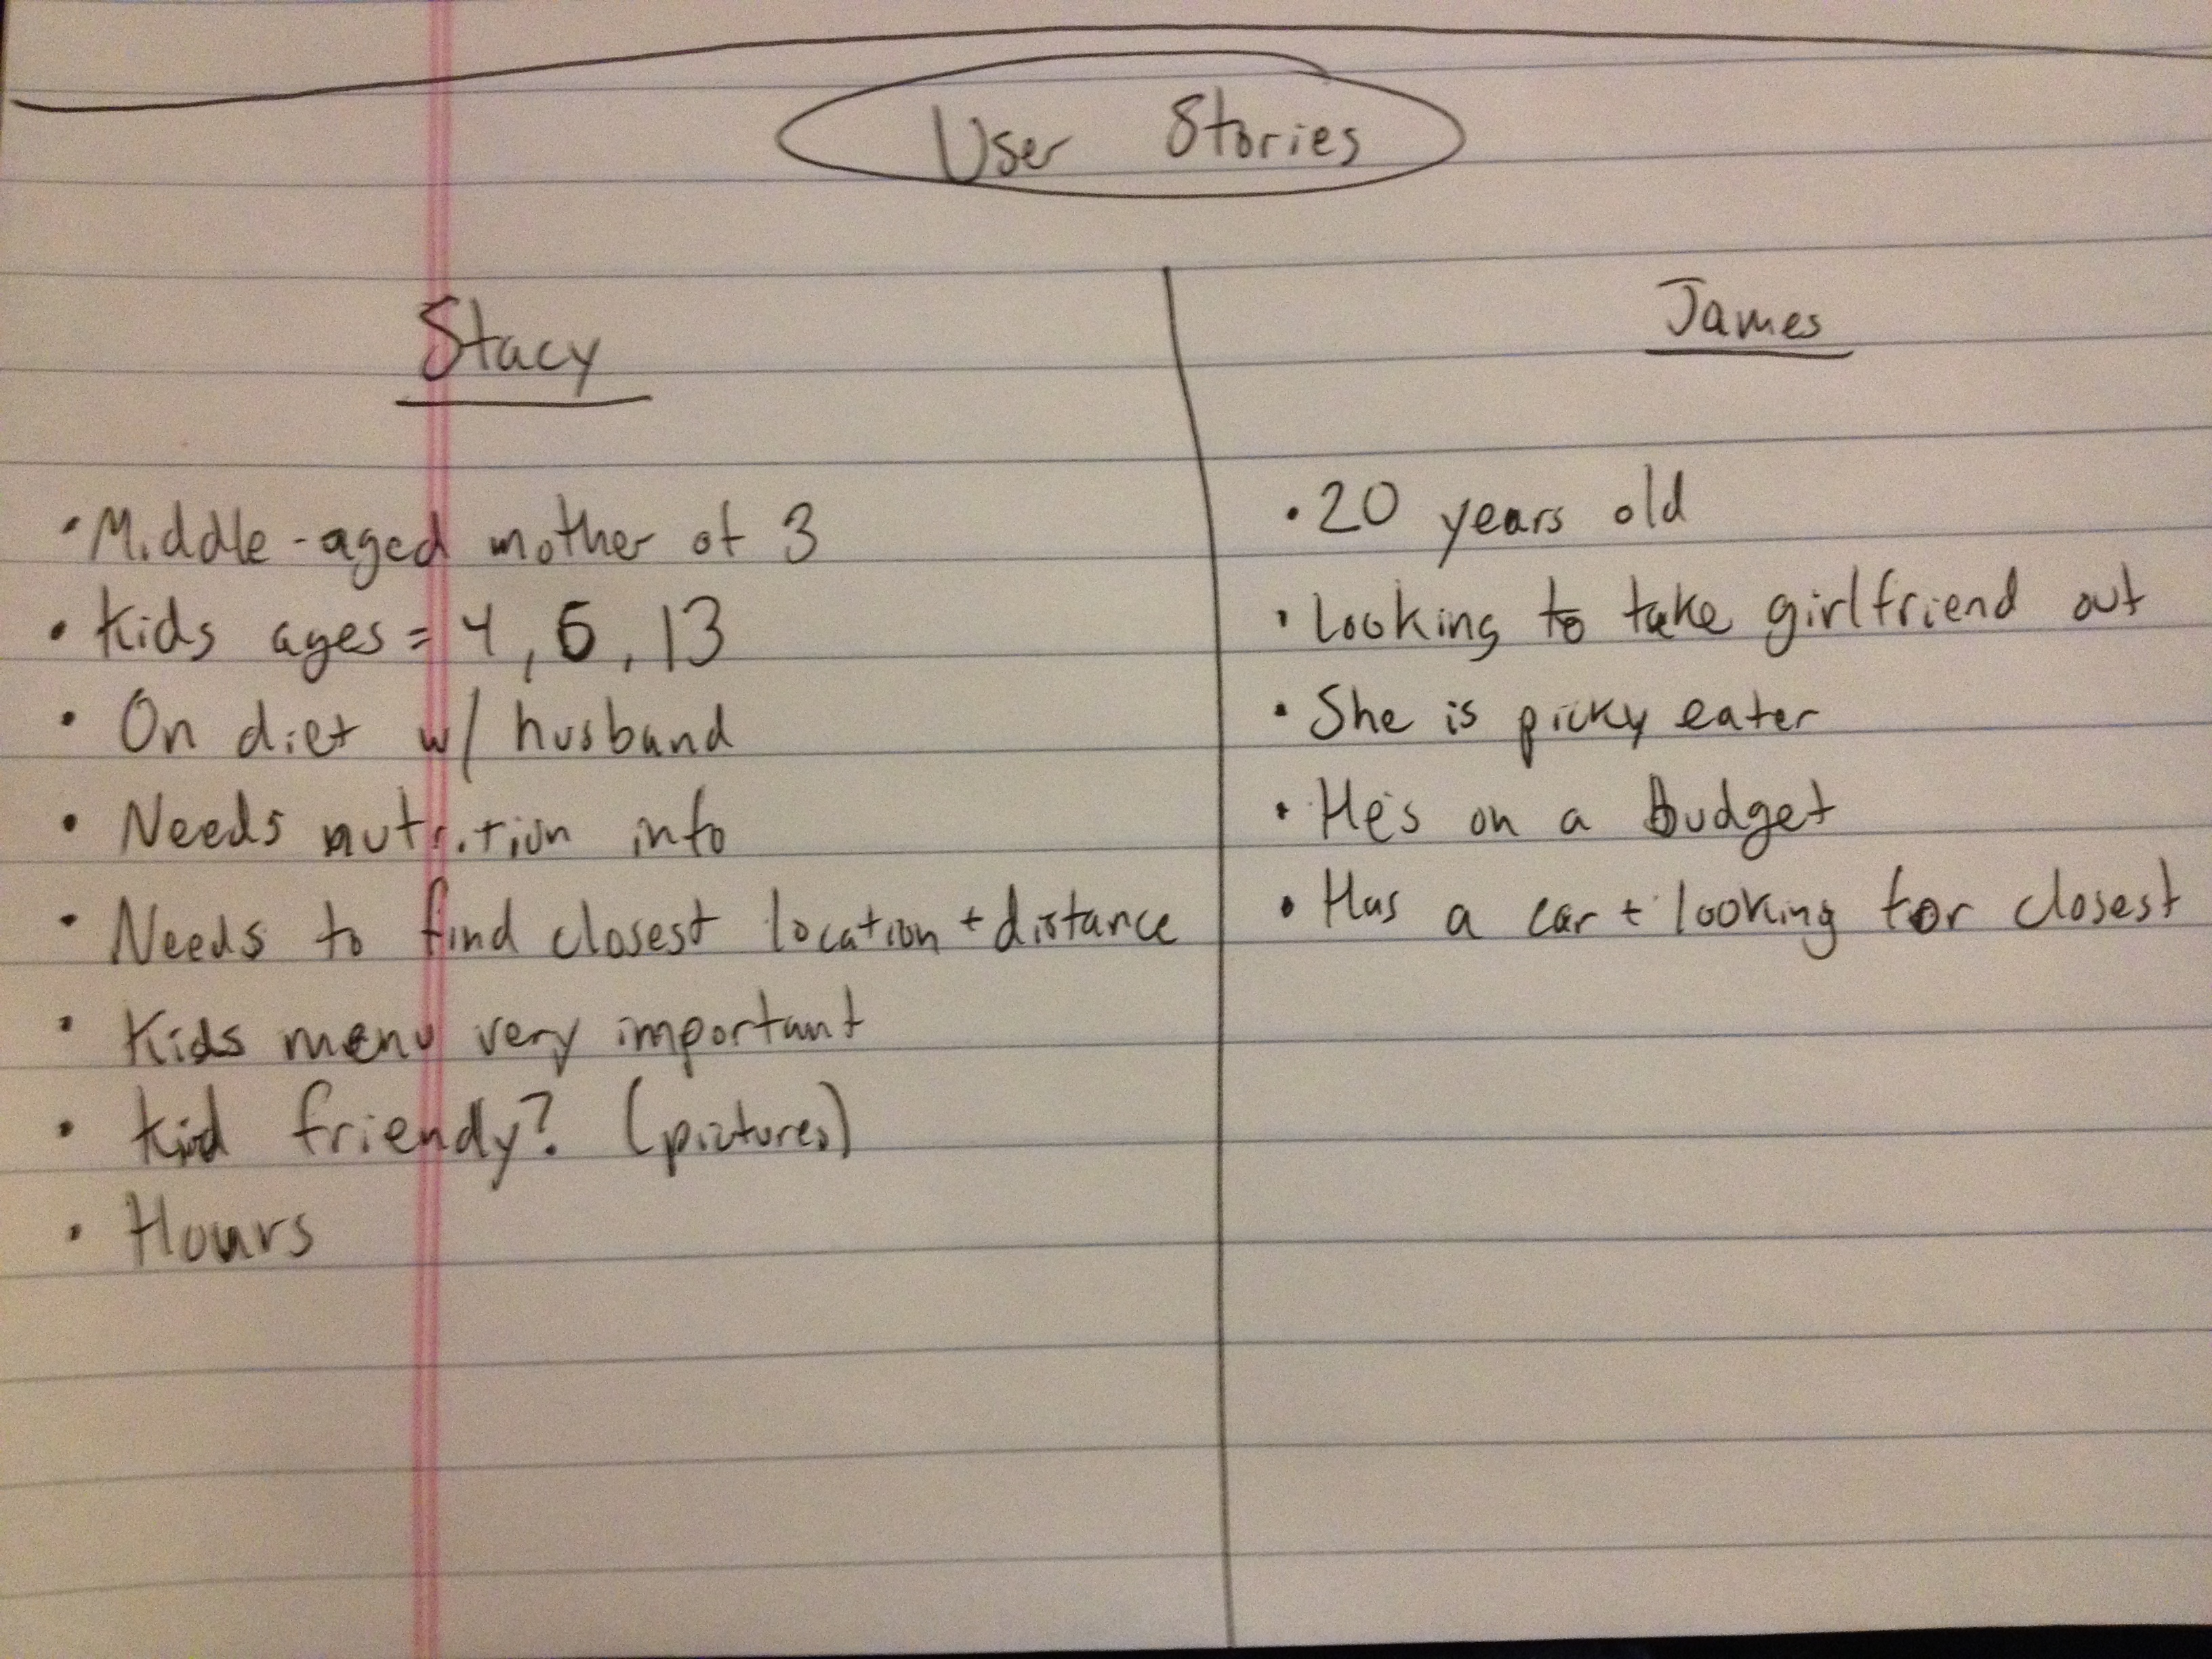 User Stories
Stacy
• Middle-aged mother of 3
• Kids ages = 4, 6, 13
• On diet w/ husband
• Needs nutrition info
• Needs to find closest location + distance
• Kids menu very important
• Kid friendy? (pictures)
• Hours
James
• 20 years old
• Looking to take girlfriend out
• She is picky eater
• He's on a budget
• Has a car + looking for closest